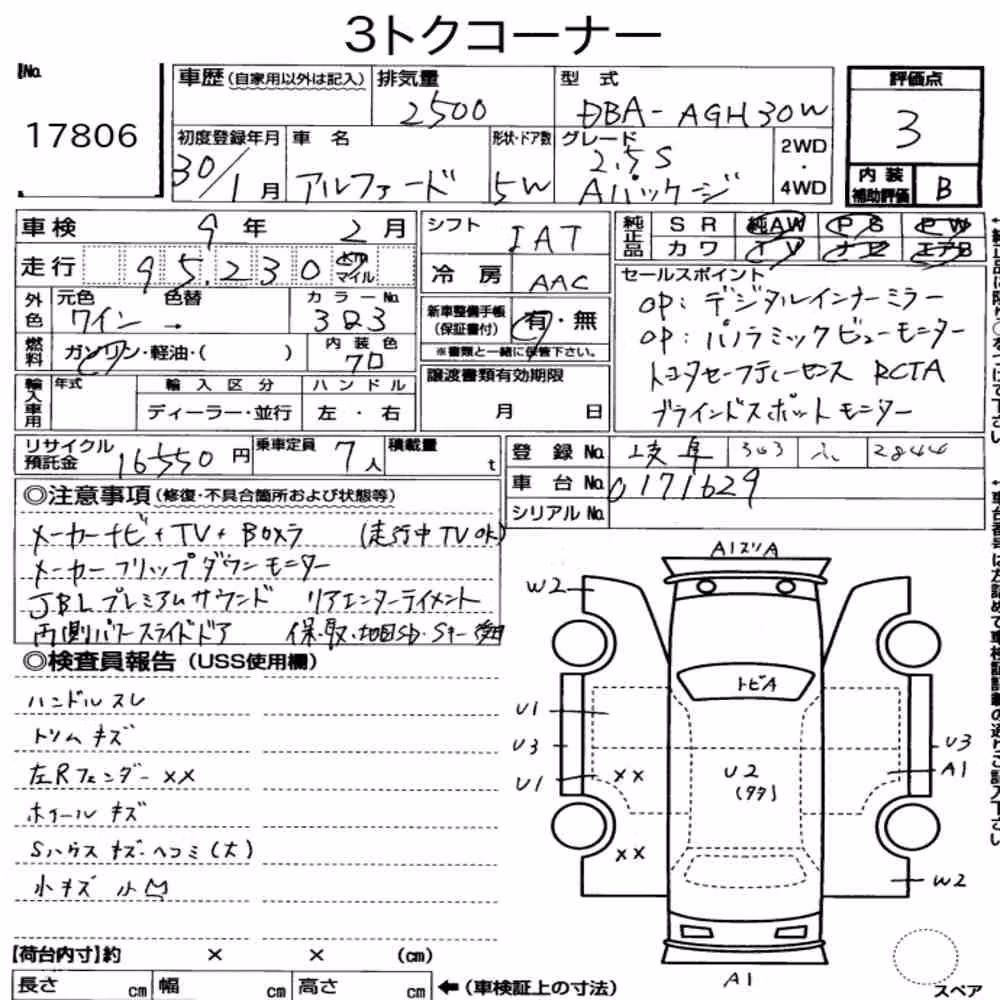 3トクコーナー
No.
17806
車歴(自家用以外は記入) 排気量 型式 評価点
2500 DBA-AGH30W 3
初度登録年月 車名 形状・ドア数 グレード 2WD・4WD
30/1月 アルファード 5W 2.5S Aパッケージ
内装補助評価 B
車検 9年 2月 シフト IAT
走行 95,230 km マイル 冷房 AAC
純正品 SR 純AW PS PW
カワ TV ナビ エアB
外色 元色 色替 カラーNo.
ワイン → 3Q3
新車整備手帳(保証書付) 有・無
※書類と一緒に保管下さい。
燃料 ガソリン・軽油・( ) 内装色 クロ
輸入車用 年式 輸入区分 ハンドル
ディーラー・並行 左・右
譲渡書類有効期限
月 日
セールスポイント
OP:デジタルインナーミラー
OP:パノラミックビューモニター
トヨタセーフティーセンス RCTA
ブラインドスポットモニター
リサイクル預託金 16550円 乗車定員 7人 積載量 t
登録No. 岐阜 303 2844
車台No. 0171629
シリアルNo.
◎注意事項(修復・不具合箇所および状態等)
メーカーナビ+TV+Bカメラ (走行中TVOK)
メーカーフリップダウンモニター
JBLプレミアムサウンド リアエンターテイメント
両側パワースライドドア 保・取・地図SD・Sキー
◎検査員報告(USS使用欄)
ハンドルスレ
トリムキズ
左Rフェンダー××
ホイールキズ
Sハウスキズ・ヘコミ(大)
小キズ 小凹
【荷台内寸】約 × × (cm)
長さ cm 幅 cm 高さ cm ←(車検証上の寸法)
A1スリA
W2
トビA
U1
U3
U1
××
U2
(タタ)
U3
A1
××
W2
A1
スペア